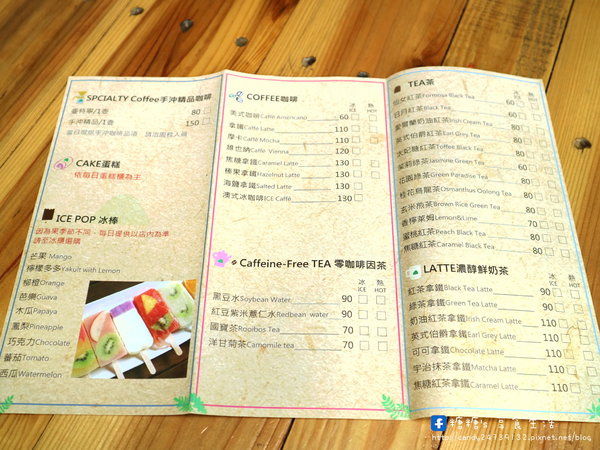 SPECIALTY Coffee手沖精品咖啡
曼特寧/1壺 80
手沖精品/1壺 150
當日提供手沖咖啡品項 請洽櫃枱人員
CAKE蛋糕
依每日蛋糕櫃為主
ICE POP 冰棒
因為果季節不同，每日提供以店內為準
請至冰櫃選購
芒果 Mango
檸檬多多Yakult with Lemon
柳橙Orange
芭樂Guava
木瓜Papaya
鳳梨Pineapple
巧克力Chocolate
蕃茄Tomato
西瓜Watermelon
COFFEE咖啡
冰 ICE 熱 HOT
美式咖啡Caffe Americano 60
拿鐵Caffe Latte 110
摩卡Caffe Mocha 110
維也納Caffe Vienna 120
焦糖拿鐵Caramel Latte 130
榛果拿鐵Hazelnut Latte 130
海鹽拿鐵Salted Latte 130
澳式冰咖啡ICE Caffe 130
Caffeine-Free TEA 零咖啡因茶
冰 ICE 熱 HOT
黑豆水Soybean Water 90
紅豆紫米薏仁水Redbean water 90
國寶茶Rooibos Tea 70
洋甘菊茶Camomile tea 70
TEA茶
冰 ICE 熱 HOT
仙女紅茶Formosa Black Tea 60
日月紅茶Black Tea 60
愛爾蘭奶油紅茶Irish Cream Tea 80
英式伯爵紅茶Earl Grey Tea 80
太妃糖紅茶Toffee Black Tea 80
茉莉綠茶Jasmine Green Tea 60
花園綠茶Green Paradise Tea 80
桂花烏龍茶Osmanthus Oolong Tea 80
玄米煎茶Brown Rice Green Tea 80
香檸萊姆Lemon&Lime 70
蜜桃紅茶Peach Black Tea 80
焦糖紅茶Caramel Black Tea 80
LATTE濃醇鮮奶茶
冰 ICE 熱 HOT
紅茶拿鐵Black Tea Latte 90
綠茶拿鐵Green Tea Latte 90
奶油紅茶拿鐵Irish Cream Latte 110
英式伯爵拿鐵Earl Grey Latte 110
可可拿鐵Chocolate Latte 110
宇治抹茶拿鐵Matcha Latte 110
焦糖紅茶拿鐵Caramel Latte 110
糖糖's 享食生活
http://candy24734132.pixnet.net/blog